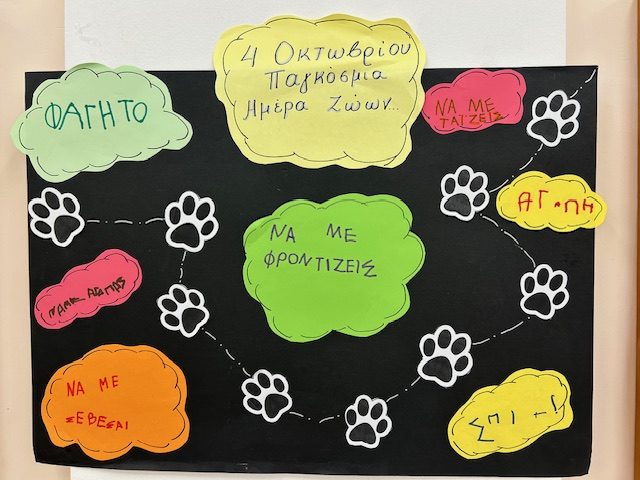 4 Οκτωβρίου
Παγκόσμια
Ημέρα Ζώων..
ΦΑΓΗΤΟ
ΝΑ ΜΕ
ΤΑΪΖΕΙΣ
ΑΓΑΠΗ
ΝΑ ΜΕ
ΦΡΟΝΤΙΖΕΙΣ
ΝΑ ΜΕ
ΣΕΒΕΣΑΙ
ΣΠΙΤΙ